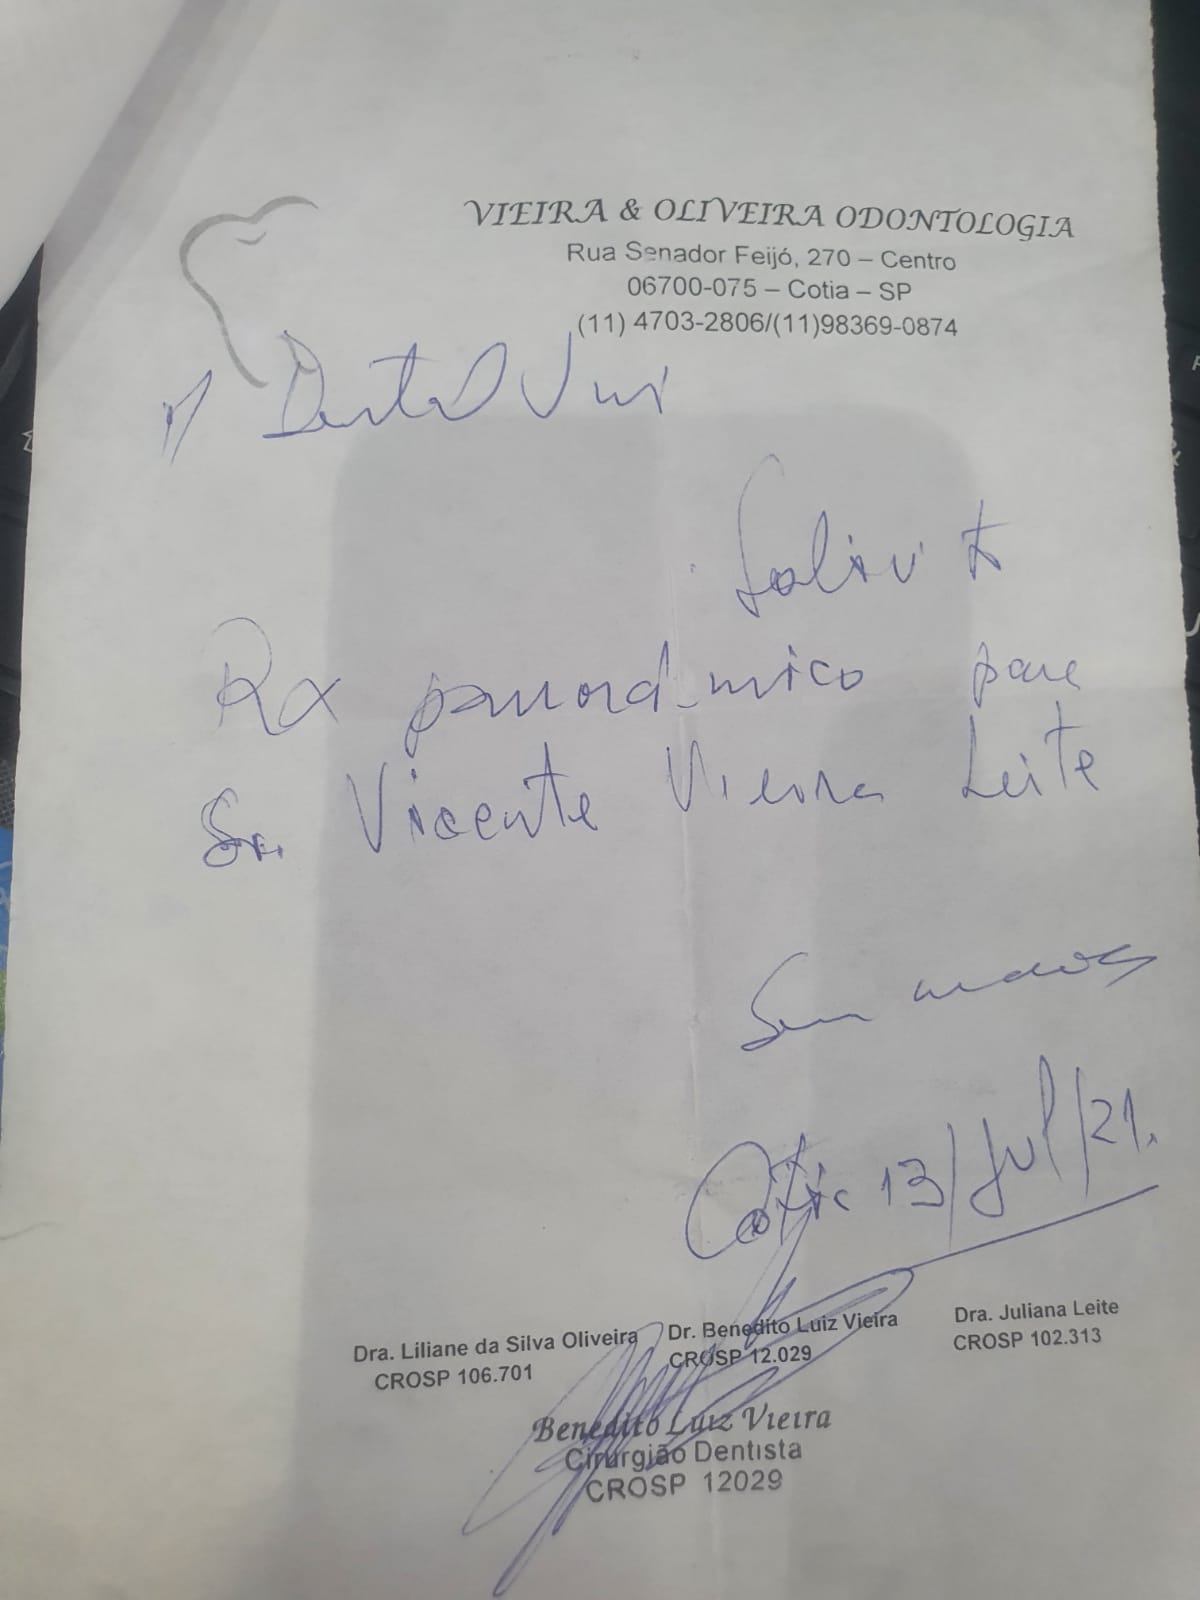 VIEIRA & OLIVEIRA ODONTOLOGIA
Rua Senador Feijó, 270 – Centro
06700-075 – Cotia – SP
(11) 4703-2806/(11)98369-0874
p/ Dental
Solicito
Rx panorâmico para
Sr. Vicente Vieira Leite
Sem mais
Cotia 13/Jul/21.
Dra. Liliane da Silva Oliveira Dr. Benedito Luiz Vieira Dra. Juliana Leite
CROSP 106.701 CROSP 12.029 CROSP 102.313
Benedito Luiz Vieira
Cirurgião Dentista
CROSP 12029